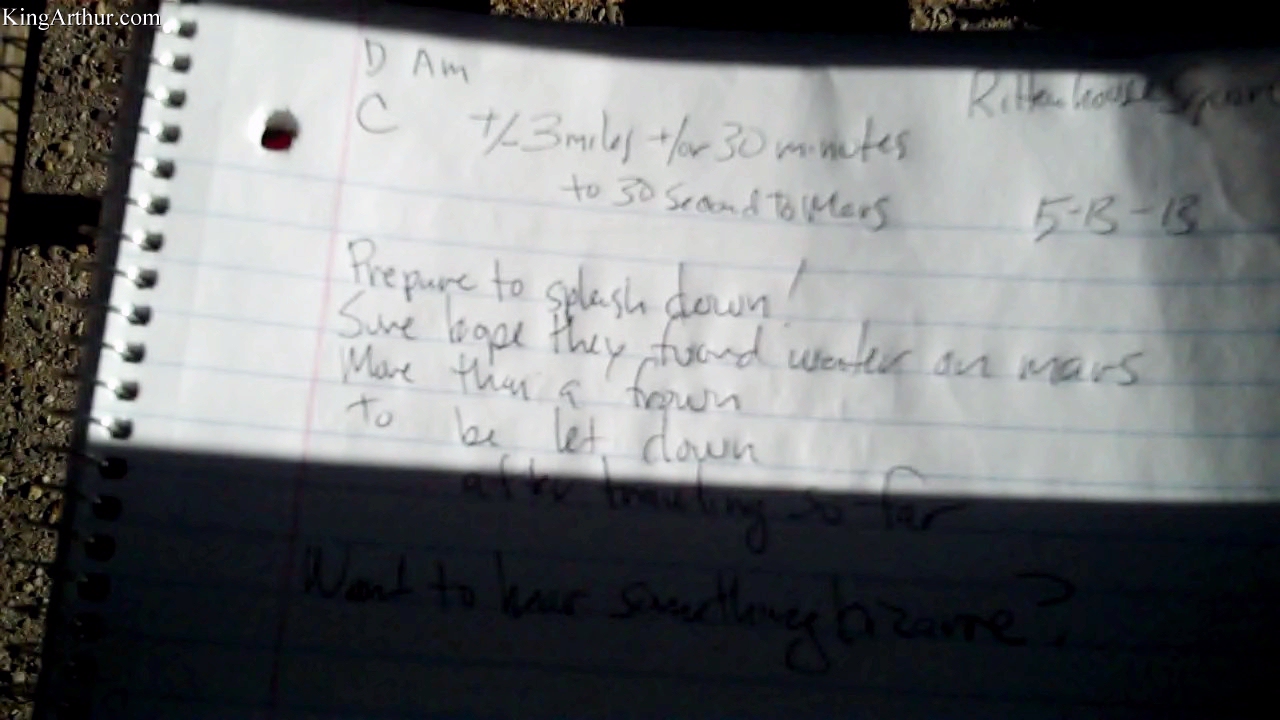 KingArthur.com
D Am
Rittenhouse Square
C +/- 3 miles +/or 30 minutes
to 30 Second To Mars
5-13-13
Prepare to splash down!
Sure hope they found water on mars
More than a frown
To be let down
after traveling so far
Want to hear something bizarre?